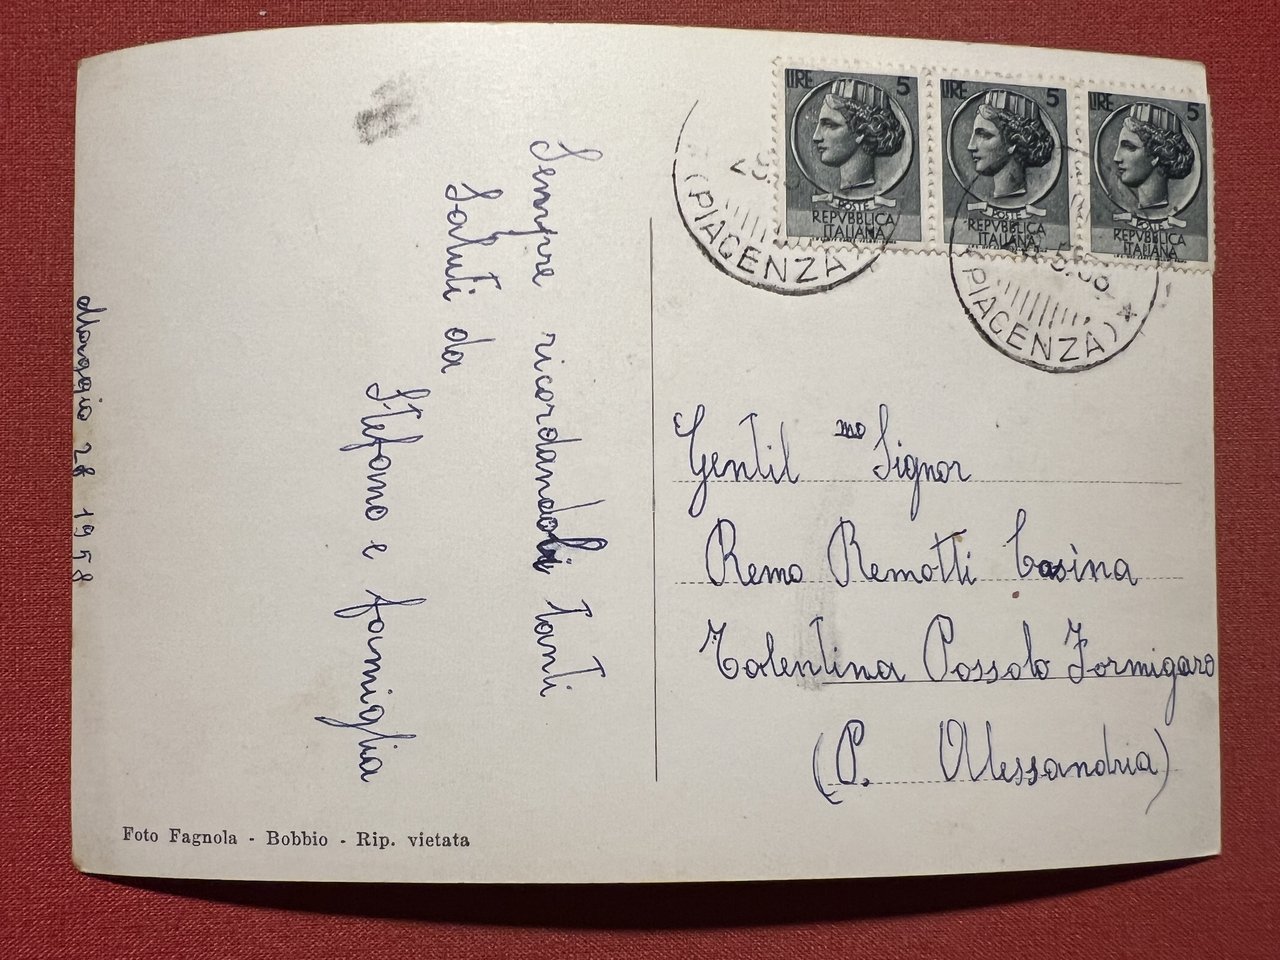 Maggio 28 1958
Sempre ricordandoli tanti
Saluti da
Stefano e famiglia
Foto Fagnola - Bobbio - Rip. vietata
LIRE 5
POSTE
REPVBBLICA
ITALIANA
LIRE 5
POSTE
REPVBBLICA
ITALIANA
LIRE 5
POSTE
REPVBBLICA
ITALIANA
(PIACENZA)
(PIACENZA) *
Gentil mo Signor
Remo Remotti Casina
Valentina Possolo Formigaro
(P. Alessandria)